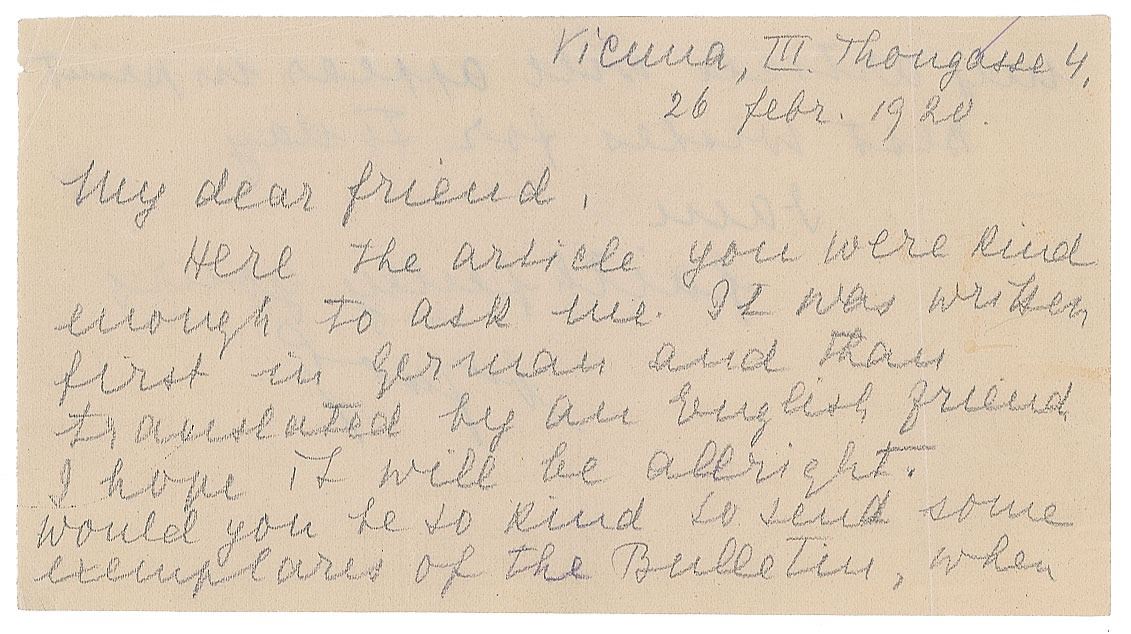 Vienna, III. Thongasse 4,
26 febr. 1920.
My dear friend,
Here the article you were kind
enough to ask me. It was written
first in German and than
translated by an English friend
I hope it will be allright.
Would you be so kind so send some
exemplares of the Bulletin, when